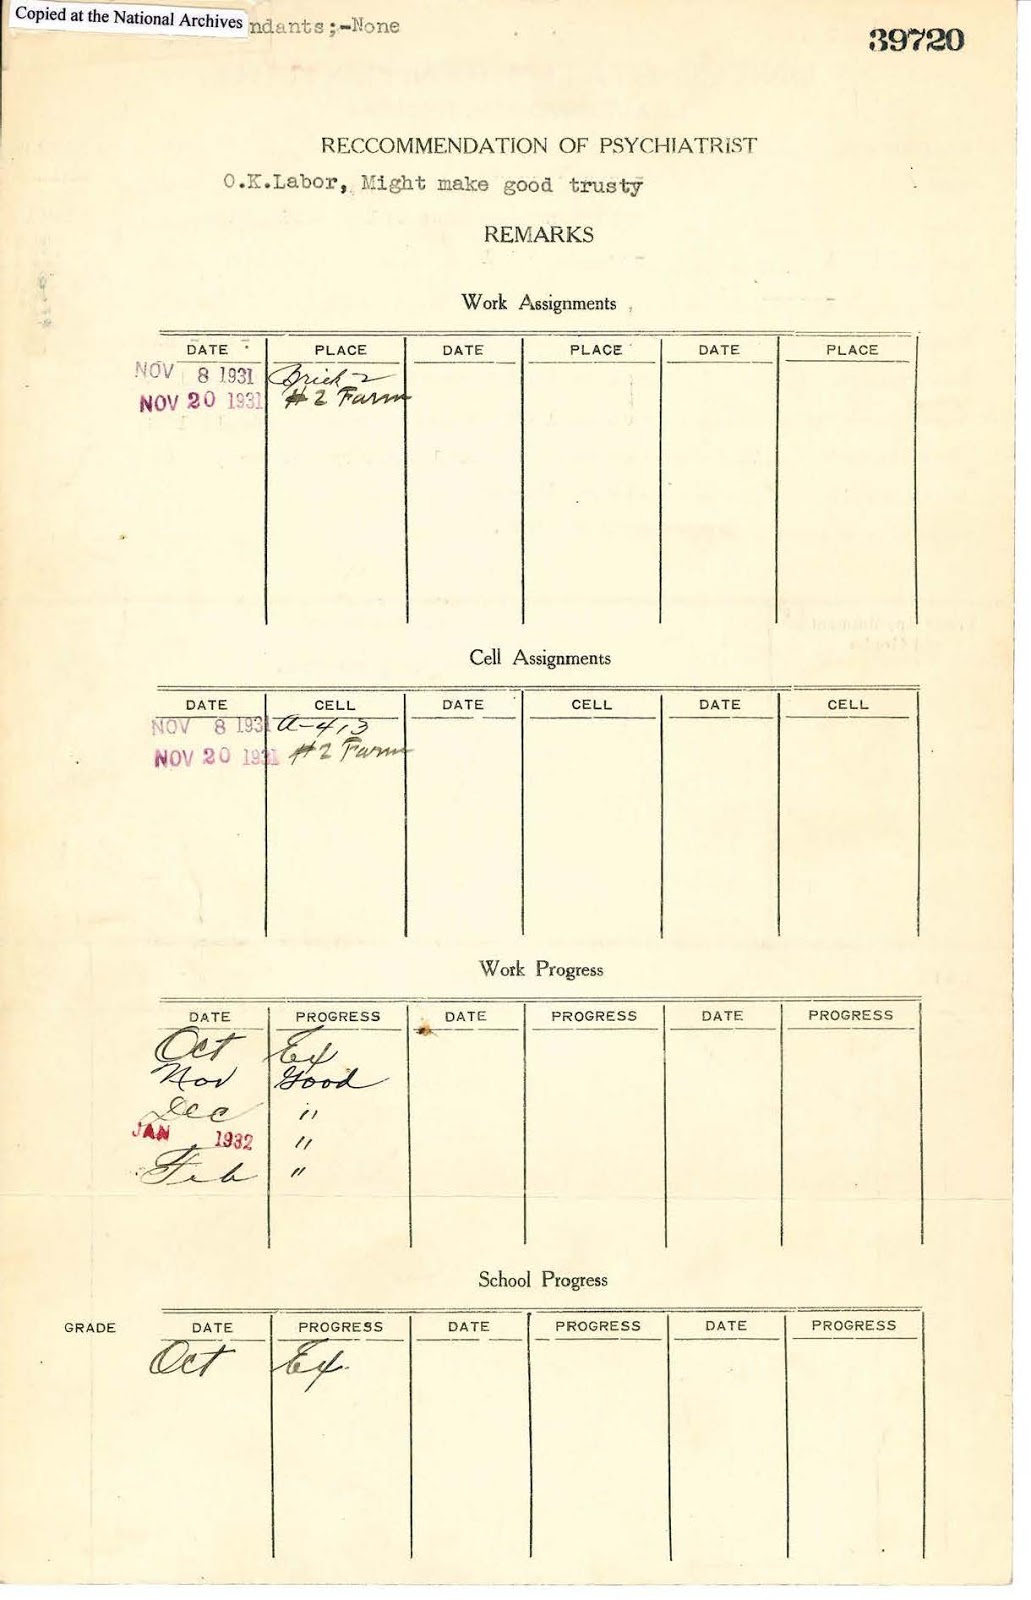 Copied at the National Archives
ndants;-None
39720
RECCOMMENDATION OF PSYCHIATRIST
O.K.Labor, Might make good trusty
REMARKS
Work Assignments
DATE PLACE DATE PLACE DATE PLACE
NOV 8 1931 Brick 2
NOV 20 1931 #2 Farm
Cell Assignments
DATE CELL DATE CELL DATE CELL
NOV 8 1931 A-413
NOV 20 1931 #2 Farm
Work Progress
DATE PROGRESS DATE PROGRESS DATE PROGRESS
Oct Ex
Nov Good
Dec "
JAN 1932 "
Feb "
School Progress
GRADE DATE PROGRESS DATE PROGRESS DATE PROGRESS
Oct Ex.